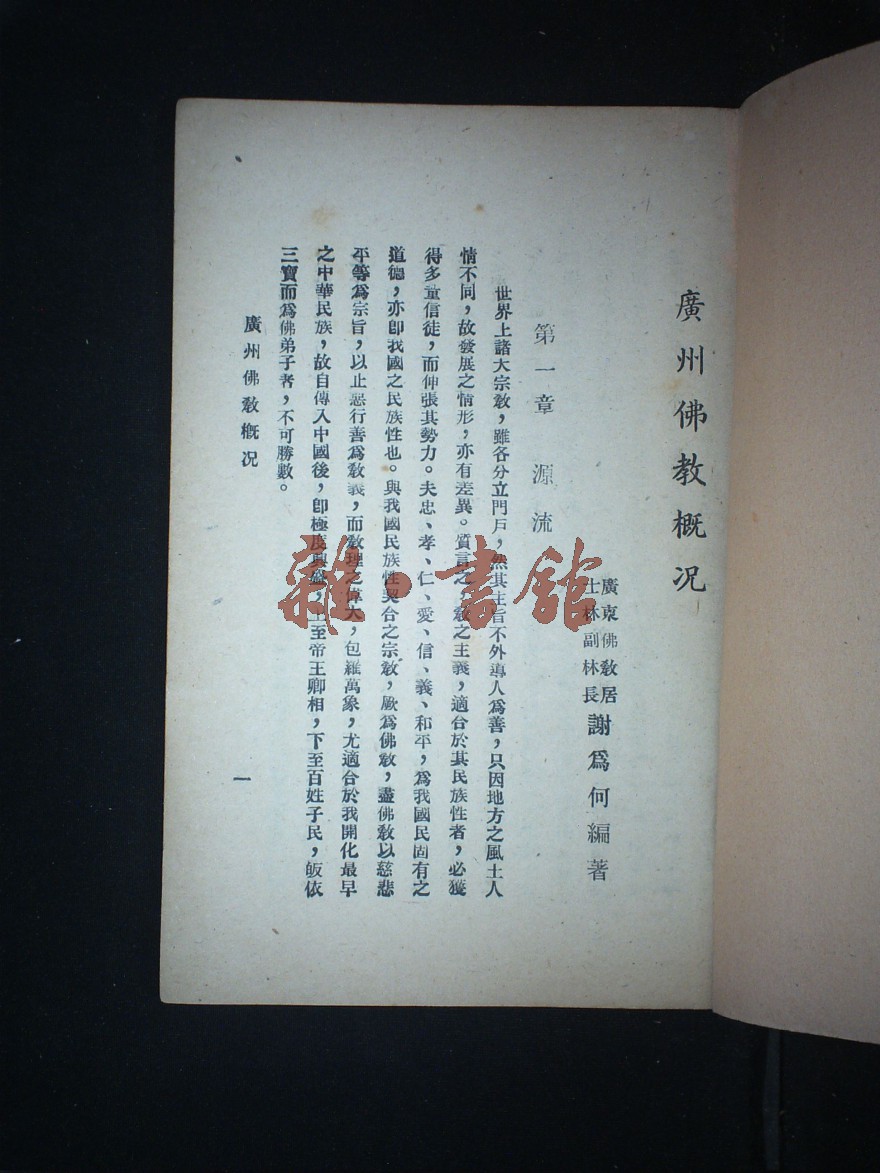 廣州佛教概况
廣東佛教居
士林副林長
謝爲何編著
第一章 源流
世界上諸大宗教，雖各分立門戶，然其主旨不外導人爲善，只因地方之風土人
情不同，故發展之情形，亦有差異。質言之，教之主義，適合於其民族性者，必獲
得多量信徒，而伸張其勢力。夫忠、孝、仁、愛、信、義、和平，爲我國民固有之
道德，亦卽我國之民族性也。與我國民族性契合之宗教，厥爲佛教，盡佛教以慈悲
平等爲宗旨，以止惡行善爲教義，而教理之偉大，包羅萬象，尤適合於我開化最早
之中華民族，故自傳入中國後，卽極度興盛，上至帝王卿相，下至百姓子民，皈依
三寶而爲佛弟子者，不可勝數。
廣州佛教概況
一
雜·書館